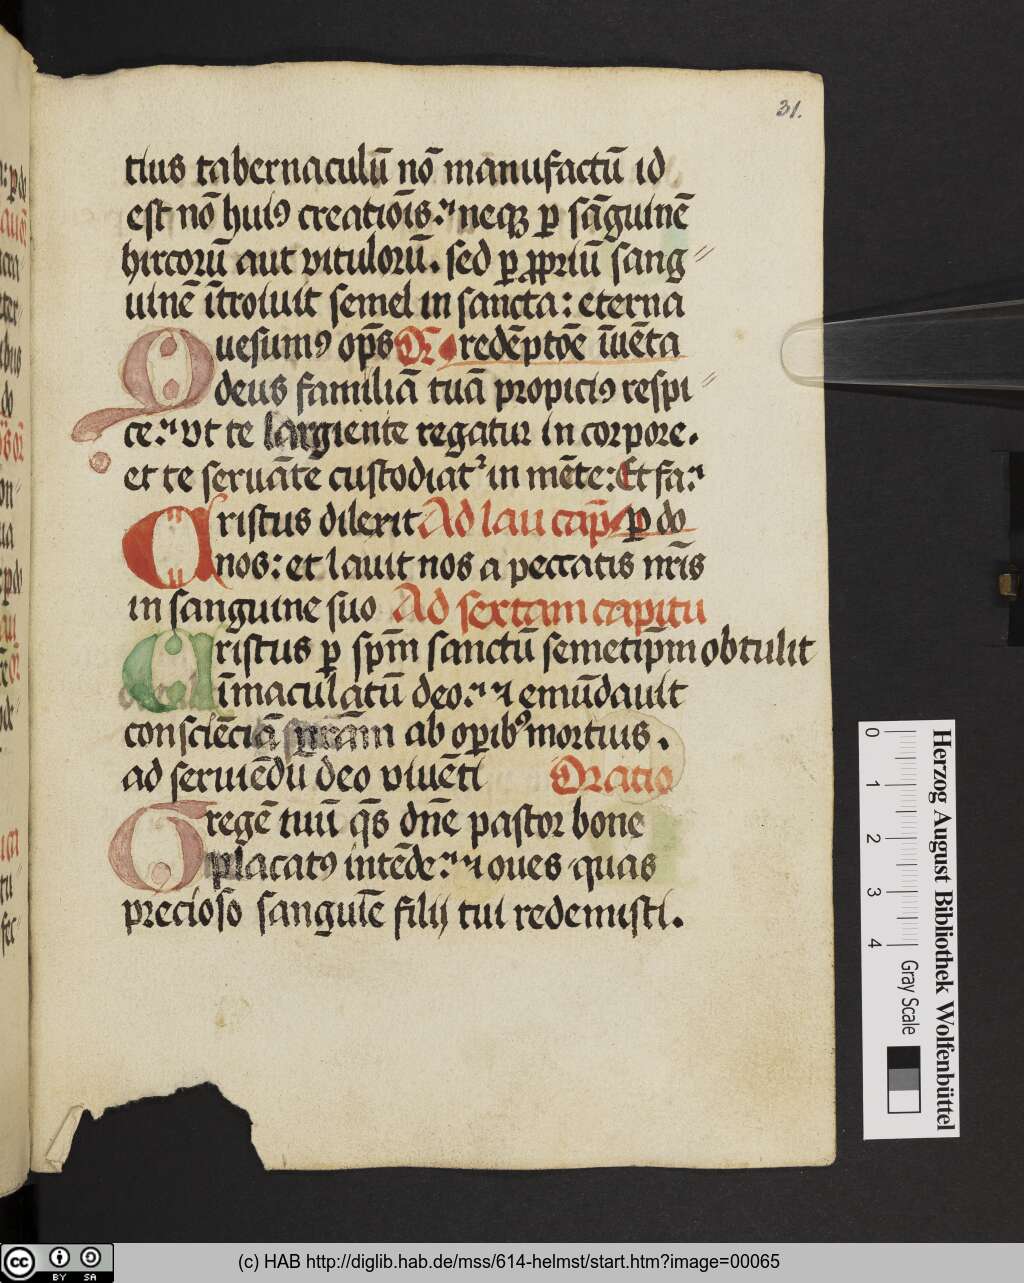 31.
tius tabernaculū nō manufactū id
est nō huiꝰ creatiōis: neqꝫ ꝑ sāguinē
hircorū aut vitulorū. sed ꝑ ꝓpriū sang〃
uinē ītroiuit semel in sancta: eterna
redēptōe īuēta
Quesumꝰ op̄s Or̄
deus familiā tuā propiciꝰ respi〃
ce: vt te largiente regatur in corpore.
et te seruāte custodiat᷑ in mēte: Et fa:
Cristus dilexit Ad lau cap̄ ꝑ do
nos: et lauit nos a peccatis nr̄is
in sanguine suo Ad sextam capitu
Cristus ꝑ sp̄m sanctū semetip̄m obtulit
īmaculatū deo: ⁊ emūdauit
consciēciā ab oꝑibꝰ mortuis.
ad seruiēdū deo viuēti Oratio
Gregē tuū qs̄ dn̄e pastor bone
placatꝰ intēde: ⁊ oues quas
precioso sanguīe filij tui redemisti.
Herzog August Bibliothek Wolfenbüttel
0 1 2 3 4 Gray Scale
cc BY SA
(c) HAB http://diglib.hab.de/mss/614-helmst/start.htm?image=00065